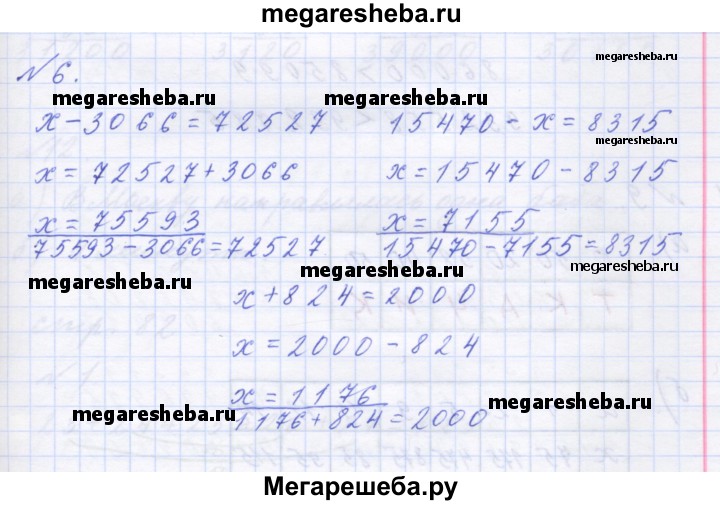 megaresheba.ru
megaresheba.ru
№6.
megaresheba.ru megaresheba.ru
x-3066=72527 15470-x=8315
x=72527+3066 x=15470-8315
x=75593 x=7155
75593-3066=72527 15470-7155=8315
megaresheba.ru megaresheba.ru megaresheba.ru
x+824=2000
x=2000-824
x=1176
1176+824=2000
megaresheba.ru megaresheba.ru
Мегарешеба.ру